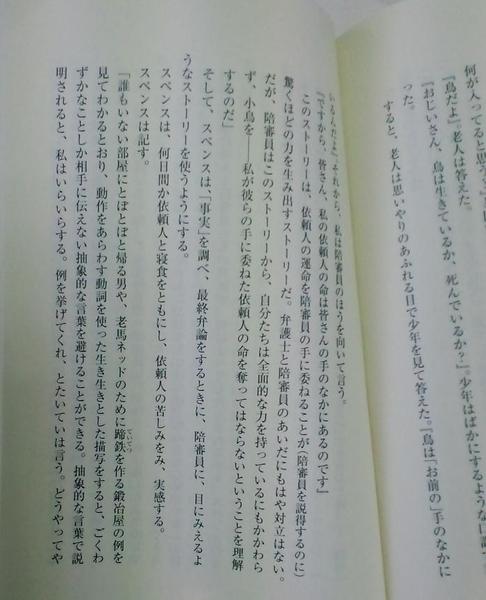 何が入ってると思う？
『鳥だよ』老人は答えた。
『おじいさん、鳥は生きているか、死んでいるか？』。少年はばかにするような口調
った。
すると、老人は思いやりのあふれる目で少年を見て答えた。『鳥は「お前の」手のなかに
いるんだよ』それから、私は陪審員のほうを向いて言う。
『ですから、皆さん、私の依頼人の命は皆さんの手のなかにあるのです』
このストーリーは、依頼人の運命を陪審員の手に委ねることが（陪審員を説得するのに）
驚くほどの力を生み出すストーリーだ。弁護士と陪審員のあいだにもはや対立はない。
だが、陪審員はこのストーリーから、自分たちは全面的な力を持っているにもかかわら
ず、小鳥を――私が彼らの手に委ねた依頼人の命を奪ってはならないということを理解
するのだ」
そして、スペンスは、「事実」を調べ、最終弁論をするときに、陪審員に、目にみえるよ
うなストーリーを使うようにする。
スペンスは、何日間か依頼人と寝食をともにし、依頼人の苦しみをみ、実感する。
スペンスは記す。
「誰もいない部屋にとぼとぼと帰る男や、老馬ネッドのために蹄鉄を作る鍛冶屋の例を
見てわかるとおり、動作をあらわす動詞を使った生き生きとした描写をすると、ごくわ
ずかなことしか相手に伝えない抽象的な言葉を避けることができる。抽象的な言葉で説
明されると、私はいらいらする。例を挙げてくれ、とたいていは言う。どうやってや